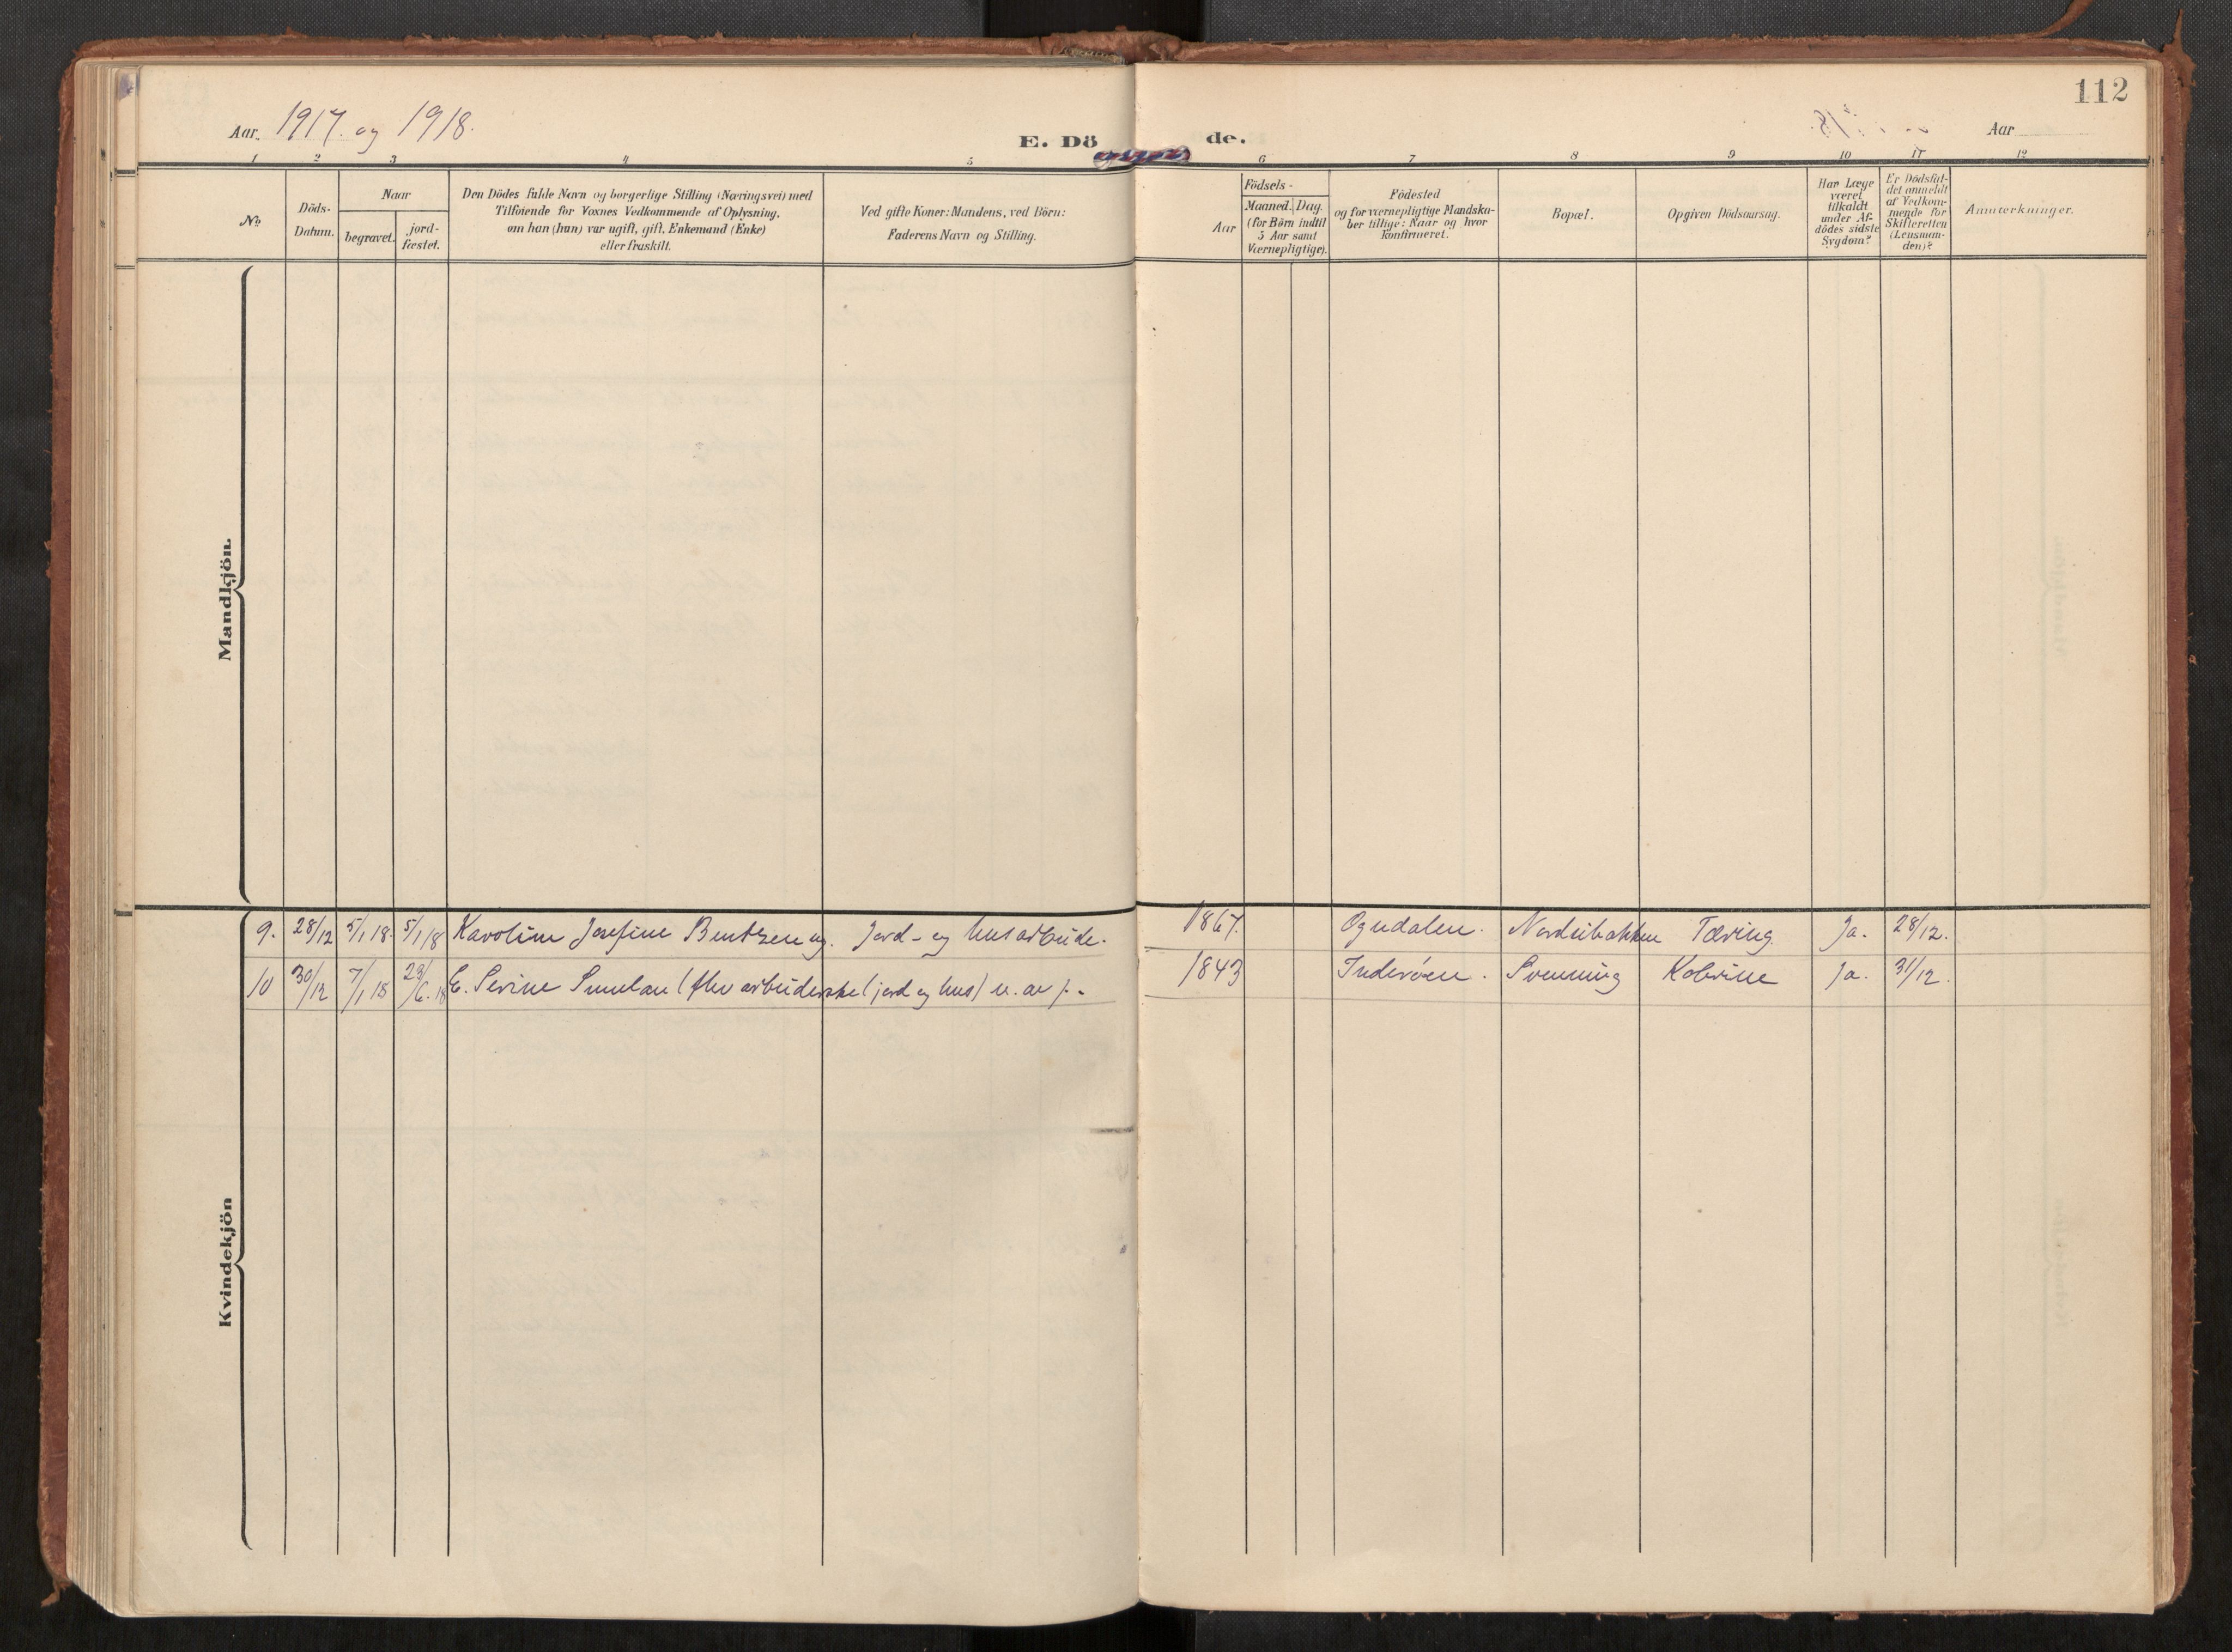 112
Aar 1917. og 1918.
E. Dö de.
Aar
1 2 3 4 5 6 7 8 9 10 11 12
No
Döds-
Datum.
Naar
begravet.
jord-
fæstet.
Den Dödes fulde Navn og borgerlige Stilling (Næringsvei) med
Tilföiende for Voxnes Vedkommende af Oplysning,
om han (hun) var ugift, gift, Enkemand (Enke)
eller fraskilt.
Ved gifte Koner: Mandens, ved Börn:
Faderens Navn og Stilling.
Födsels-
Aar
Maaned.
Dag.
(for Börn indtil
5 Aar samt
Værnepligtige).
Födested
og for værnepligtige Mandska-
ber tillige: Naar og hvor
konfirmeret.
Bopæl.
Opgiven Dödsaarsag.
Har Læge
været
tilkaldt
under Af-
dödes sidste
Sygdom?
Er Dödsfal-
det anmeldt
af Vedkom-
mende for
Skifteretten
(Lensman-
den)?
Anmærkninger.
Mandkjön.
9. 28/12 5/1 18. 5/1 18 Karoline Josefine Bentzen ug. Jord- og husarbeide. 1867. Ogndalen. Nordsibakken Tæring. Ja. 28/12.
10 30/12 7/1 18 23/6. 18 E. Serine (fhv arbeiderske (jord og hus) u. av f. 1843 Inderøen. Svenning Kolerine Ja. 31/12.
Kvindekjön